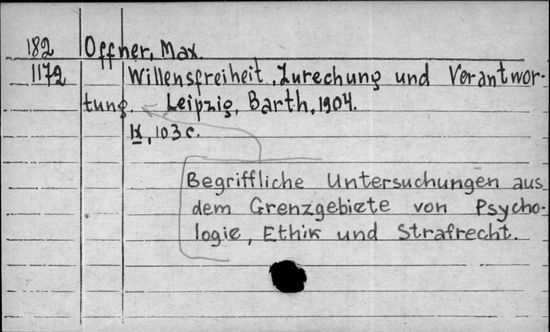 182 Offner, Max.
1172 Willensfreiheit, Zurechung und Verantwor-
tung. Leipzig, Barth, 1904.
IX, 103 c.
Begriffliche Untersuchungen aus
dem Grenzgebiete von Psycho-
logie, Ethik und Strafrecht.